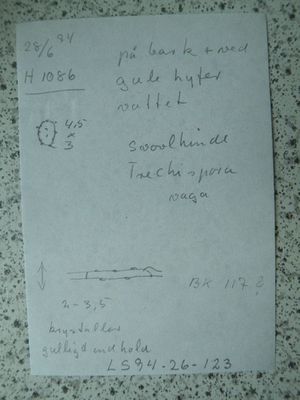 28/6 94
på bark + ved
H 1086
gule hyfer
vattet
4,5
x
3
Svovlhinde
Trechispora
vaga
BK 117?
2-3,5
krystaller
gulligt indhold
LS94-26-123